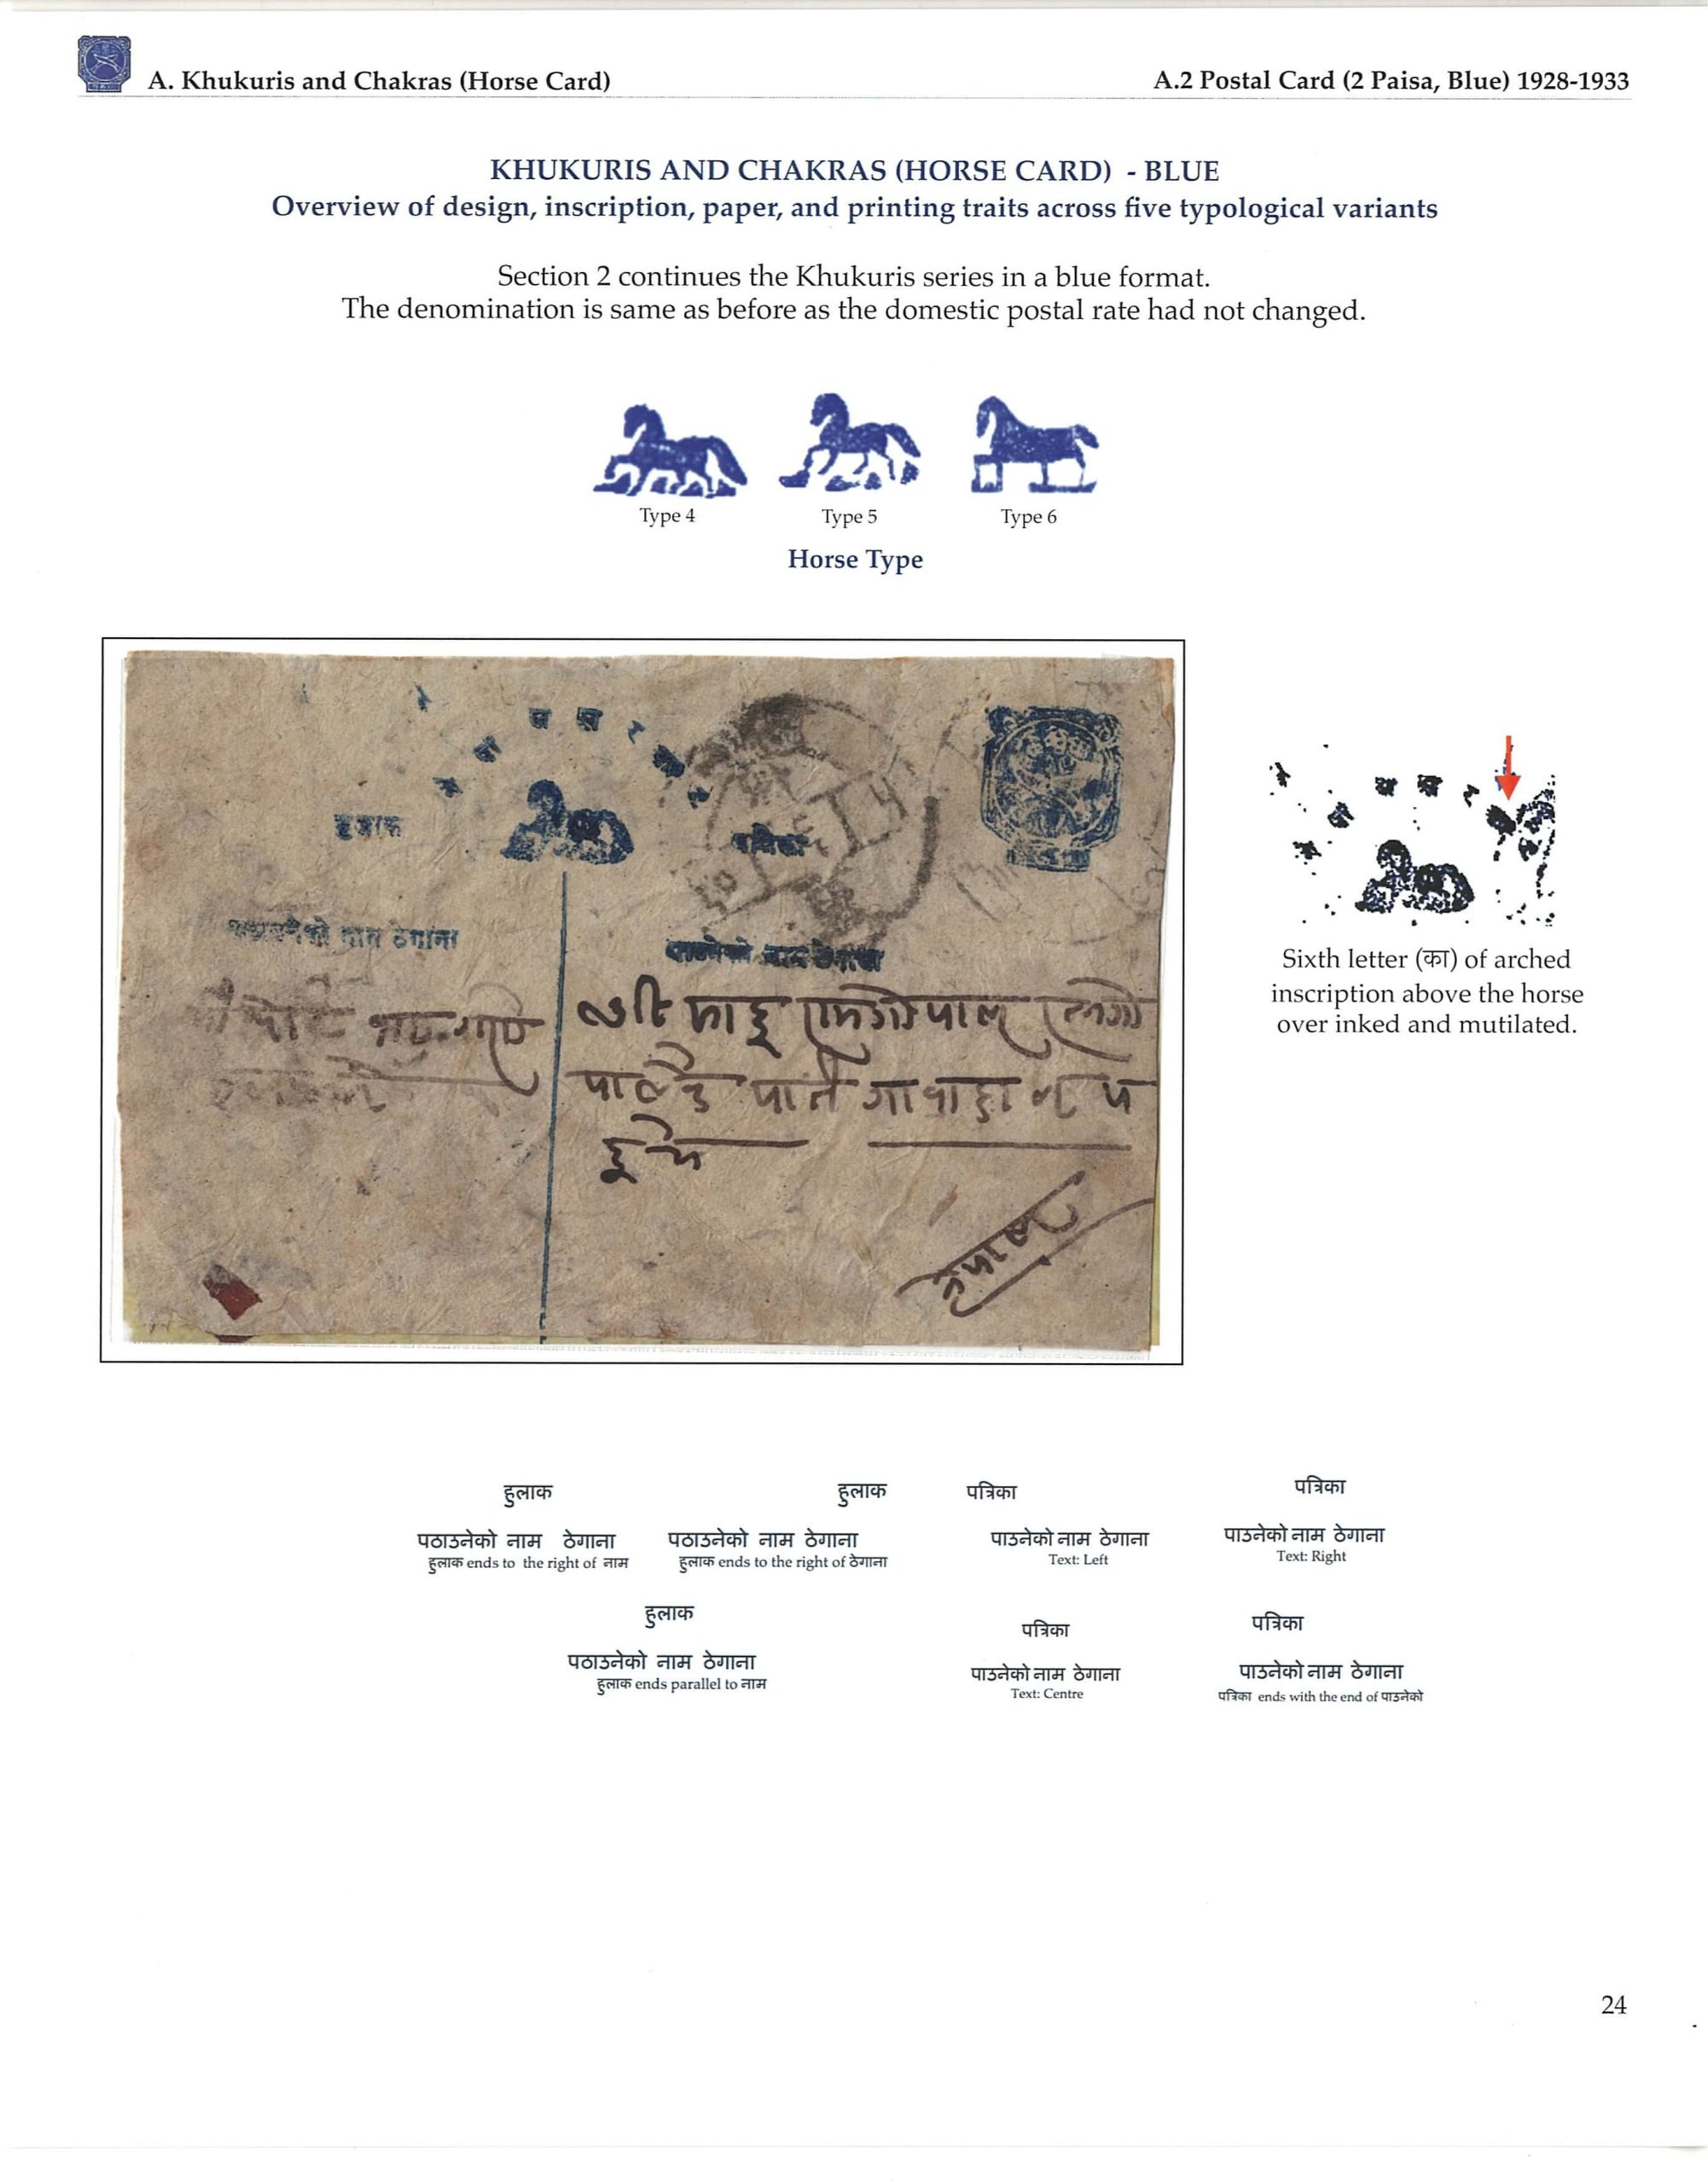 A. Khukuris and Chakras (Horse Card)
A.2 Postal Card (2 Paisa, Blue) 1928-1933
KHUKURIS AND CHAKRAS (HORSE CARD) - BLUE
Overview of design, inscription, paper, and printing traits across five typological variants
Section 2 continues the Khukuris series in a blue format.
The denomination is same as before as the domestic postal rate had not changed.
Type 4
Type 5
Type 6
Horse Type
ठेगाना
Sixth letter (का) of arched
inscription above the horse
over inked and mutilated.
हुलाक
पठाउनेको नाम ठेगाना
हुलाक ends to the right of नाम
हुलाक
पठाउनेको नाम ठेगाना
हुलाक ends to the right of ठेगाना
पत्रिका
पाउनेको नाम ठेगाना
Text: Left
पत्रिका
पाउनेको नाम ठेगाना
Text: Right
हुलाक
पठाउनेको नाम ठेगाना
हुलाक ends parallel to नाम
पत्रिका
पाउनेको नाम ठेगाना
Text: Centre
पत्रिका
पाउनेको नाम ठेगाना
पत्रिका ends with the end of पाउनेको
24